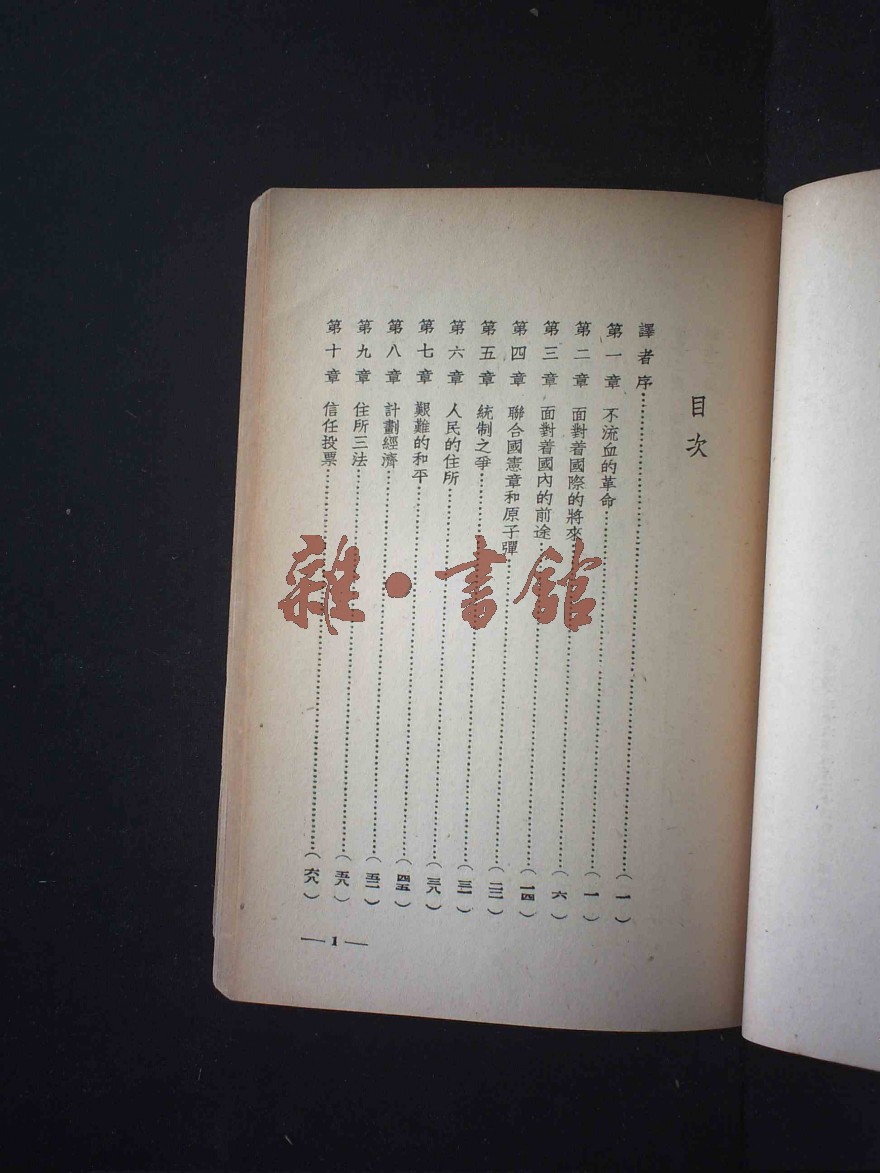 目次
譯者序……(一)
第一章 不流血的革命……(一)
第二章 面對着國際的將來……(六)
第三章 面對着國內的前途……(一四)
第四章 聯合國憲章和原子彈……(二二)
第五章 統制之爭……(三一)
第六章 人民的住所……(三八)
第七章 艱難的和平……(四五)
第八章 計劃經濟……(五二)
第九章 住所三法……(五八)
第十章 信任投票……(六八)
— 1 —
雜·書館